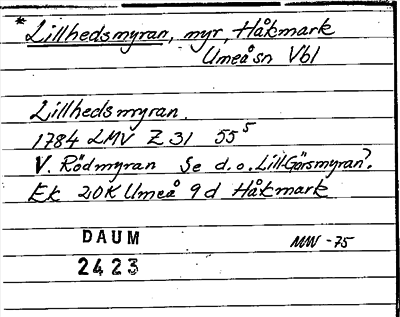 * Lillhedsmyran, myr, Håkmark
Umeå sn Vbl
Lillhedsmyran.
1784 LMV Z 31 55⁵
V. Rödmyran Se d.o. Lill-Görsmyran?.
Ek 20K Umeå 9d Håkmark
DAUM
MW -75
2423